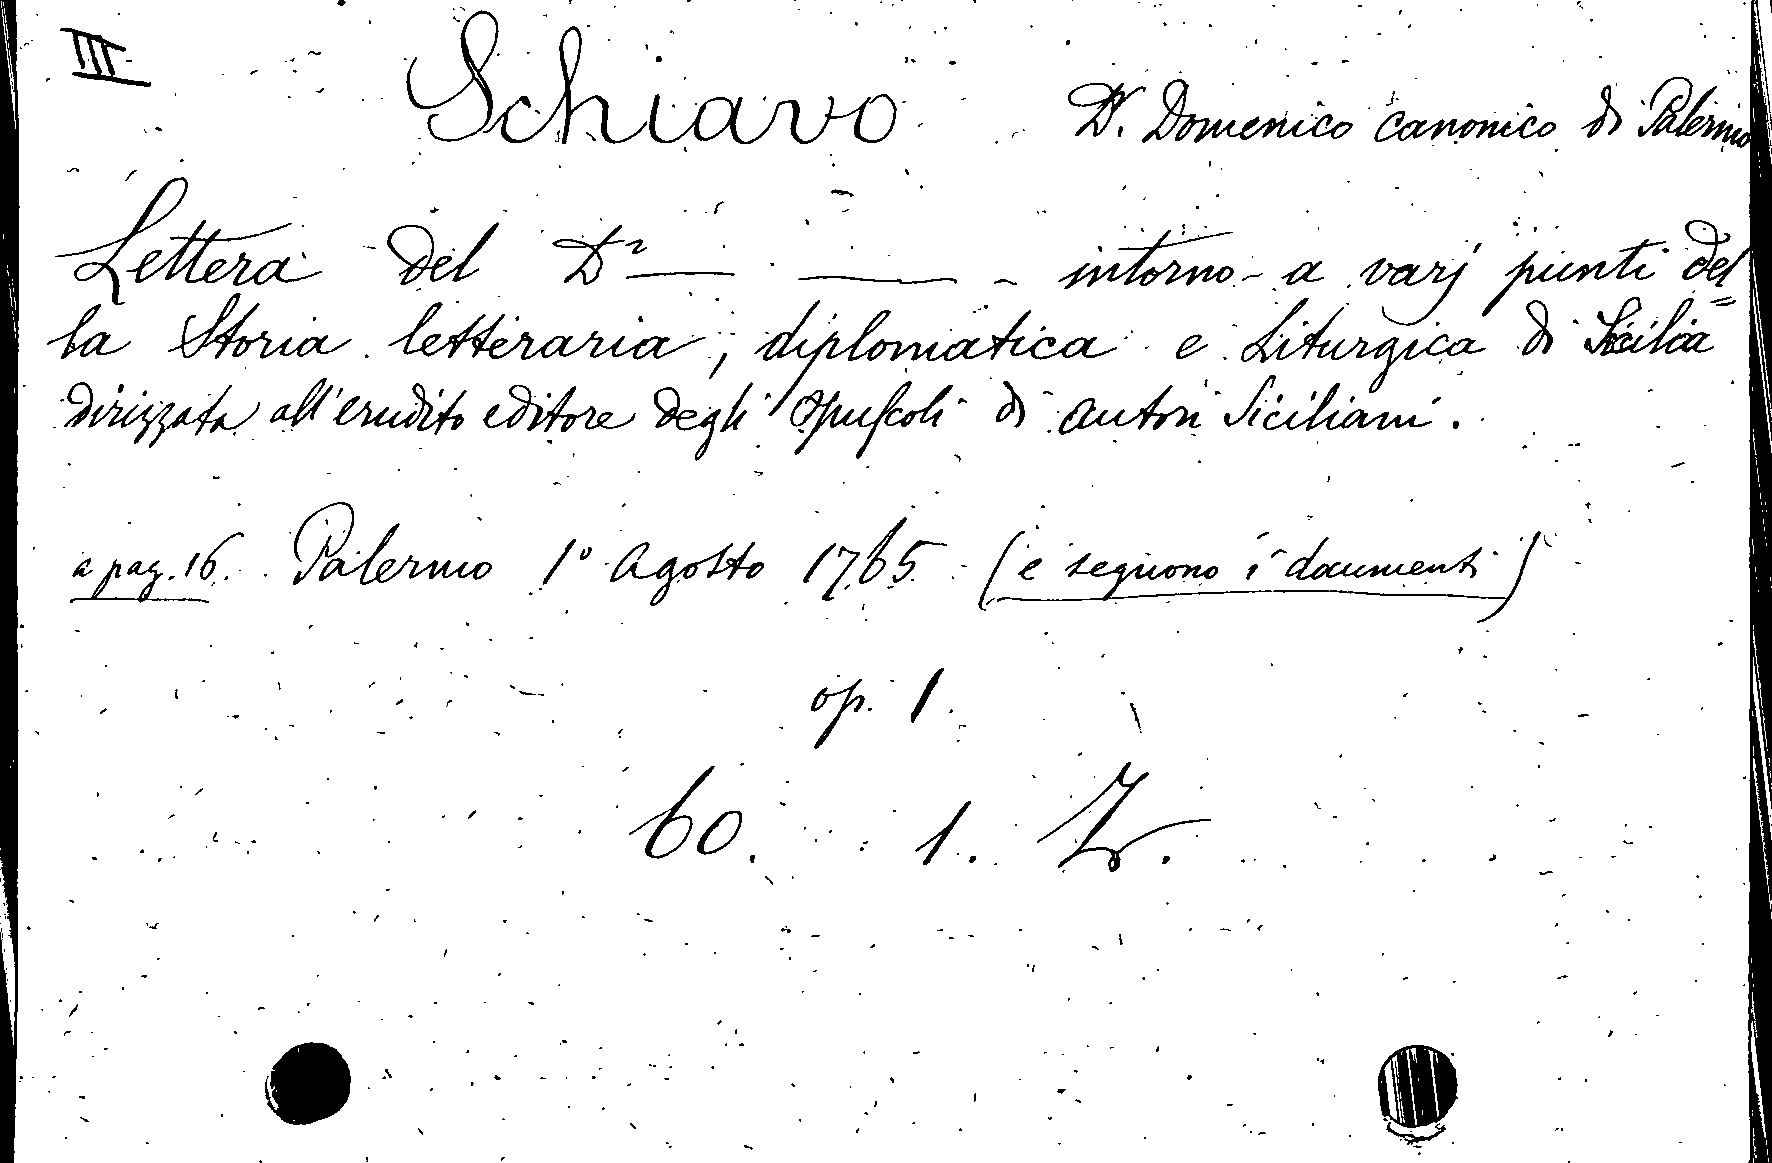 III
Schiavo Dr. Domenico canonico di Palermo
Lettera del Dr — — intorno a varj punti del=
la Storia letteraria, diplomatica e Liturgica di Sicilia
dirizzata all'erudito editore degli Opuscoli di autori Siciliani.
a pag. 16. Palermo 1º Agosto 1765 (e seguono i documenti)
op. 1.
60. 1. Z.